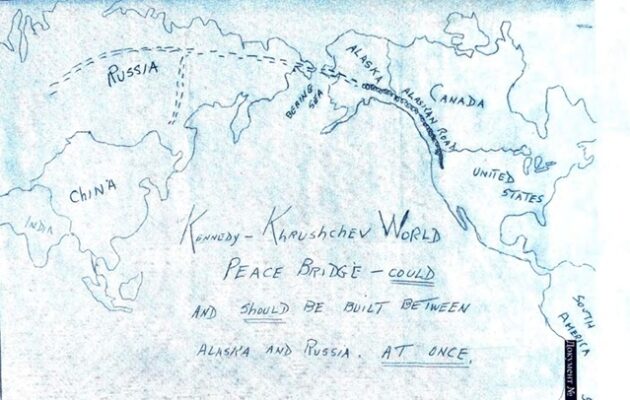 RUSSIA
ALASKA
BERING SEA
ALASKAN ROAD
CANADA
CHINA
INDIA
UNITED STATES
KENNEDY - KHRUSHCHEV WORLD
PEACE BRIDGE - COULD
AND SHOULD BE BUILT BETWEEN
ALASKA AND RUSSIA. AT ONCE.
SOUTH AMERICA
Документ №